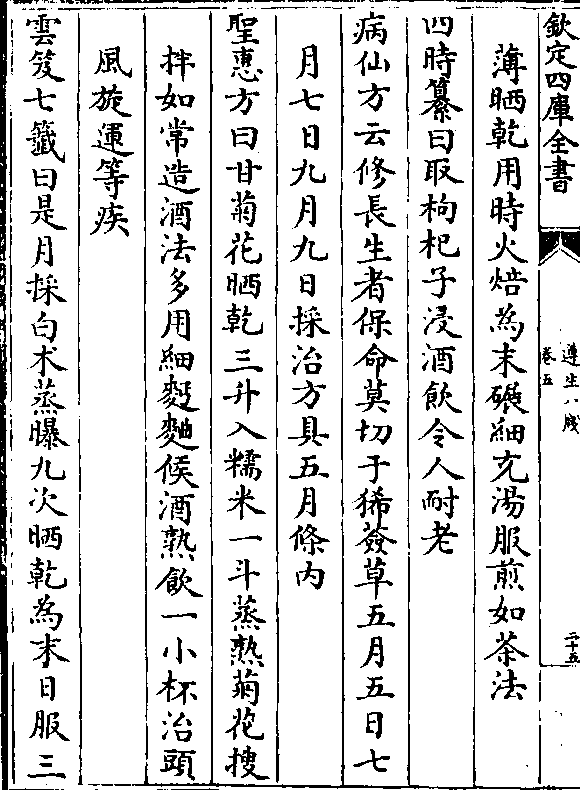 欽定四庫全書
遵生八牋
卷五
二十五
薄晒乾用時火焙為末碾細充湯服煎如茶法
四時纂曰取枸杞子浸酒飲令人耐老
病仙方云修長生者保命莫切于豨薟草五月五日七
月七日九月九日採治方具五月條内
聖惠方曰甘菊花晒乾三升入糯米一斗蒸熟菊花搜
拌如常造酒法多用細麫麯候酒熟飲一小杯治頭
風旋運等疾
雲笈七籤曰是月採白术蒸曝九次晒乾為末日服三